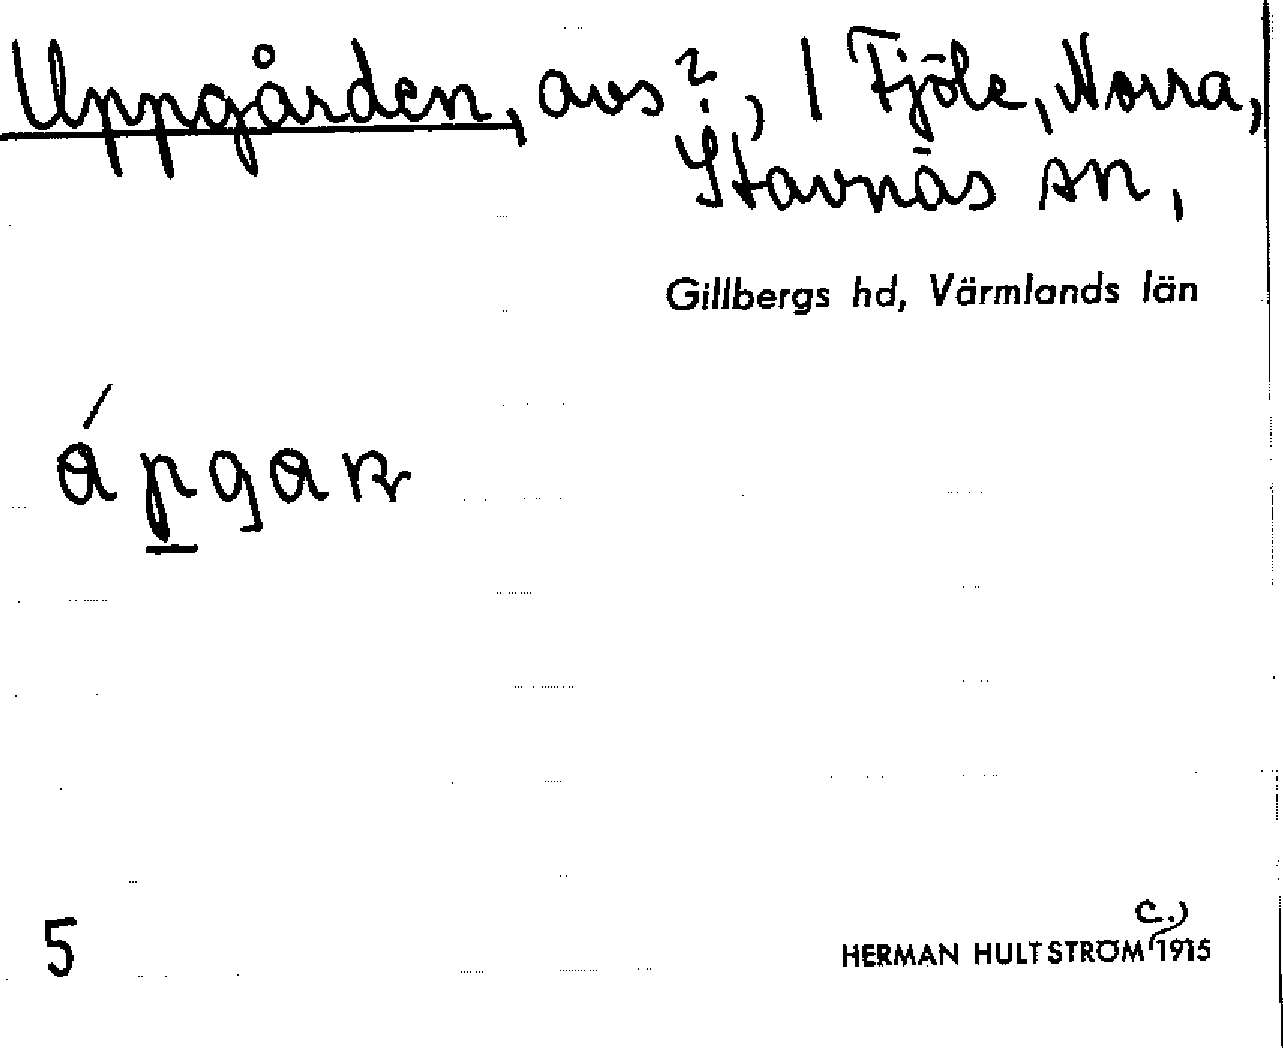 Uppgården, avs?, 1 Fjöle, Norra,
Stavnäs sn,
Gillbergs hd, Värmlands län
5
c.)
HERMAN HULTSTRÖM 1915